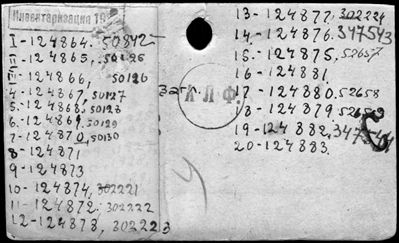 Инвентаризация 19
I-124864. 50842-
II-124865, 50126
III-124866, 50126
4-124867, 50127
5-124868, 50128
6-124869, 50129
7-124870, 50130
8-124871
9-124873
10-124874, 302221
11-124872. 302222
12-124878, 302223
загл.
А Л Ф.
13-124877, 302224
14-124876. 347543
15-124875, 52657
16-124881.
17-124880. 52658
18-124879. 52659
19-124882, 3475
20-124883.